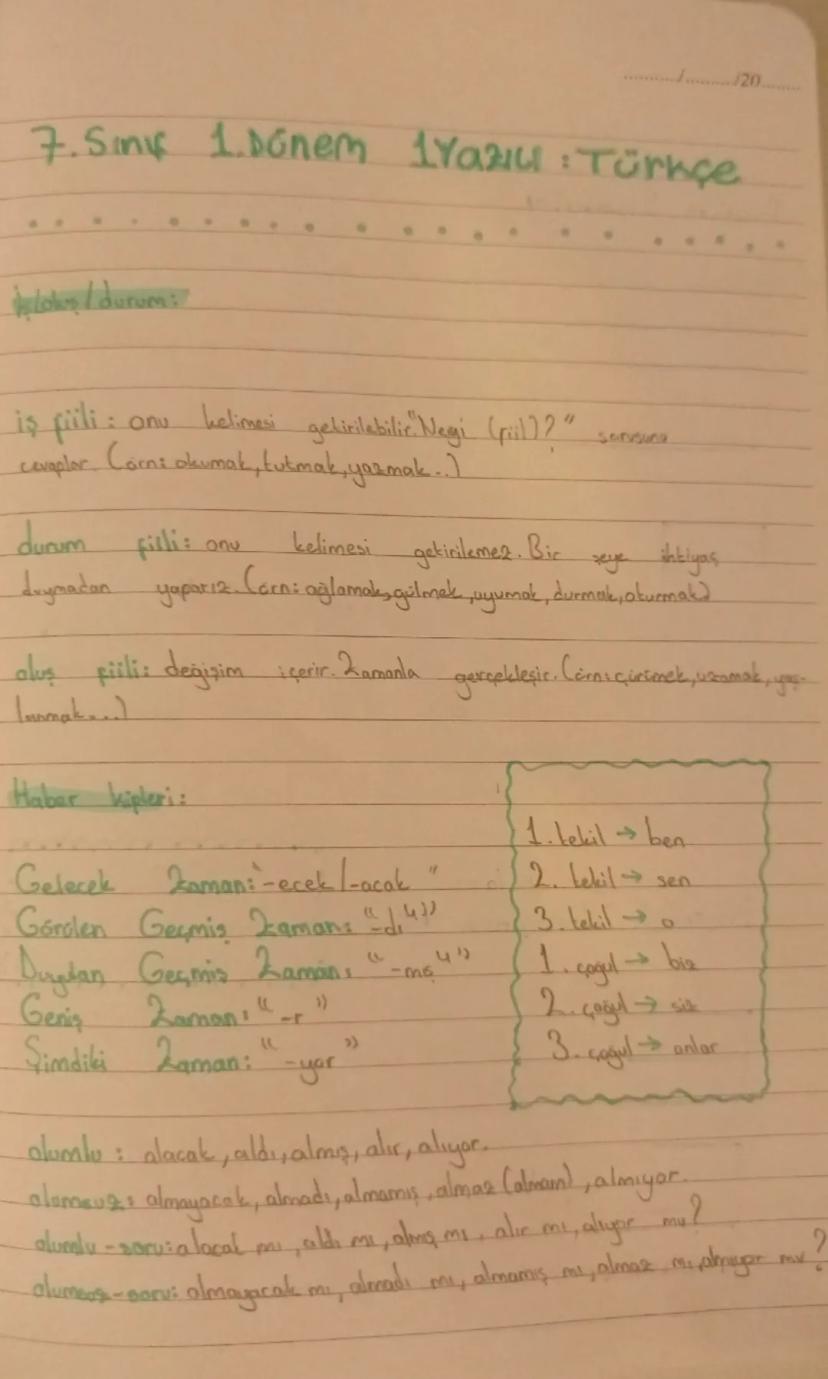 ........../........../20..........
7. Sınıf 1.Dönem 1Yazılı : Türkçe
İş/oluş/durum:
iş fiili: onu kelimesi getirilebilir. "Neyi (fiil)?" sorusuna
cevaplar. (örn: okumak, tutmak, yazmak..)
durum fiili: onu kelimesi getirilemez. Bir şeye ihtiyaç
duymadan yaparız. (örn: ağlamak, gülmek, uyumak, durmak, oturmak)
oluş fiili: değişim içerir. Zamanla gerçekleşir. (örn: çürümek, uzamak, yaş-
lanmak...)
Haber kipleri:
Gelecek Zaman: "-ecek/-acak"
Görülen Geçmiş Zaman: "-dı⁴"
Duyulan Geçmiş Zaman: "-mış⁴"
Geniş Zaman: "-r"
Şimdiki Zaman: "-yor"
1. tekil → ben
2. tekil → sen
3. tekil → o
1. çoğul → biz
2. çoğul → siz
3. çoğul → onlar
olumlu: alacak, aldı, almış, alır, alıyor.
olumsuz: almayacak, almadı, almamış, almaz (almam), almıyor.
olumlu-soru: alacak mı, aldı mı, almış mı, alır mı, alıyor mu?
olumsuz-soru: almayacak mı, almadı mı, almamış mı, almaz mı, almıyor mu?